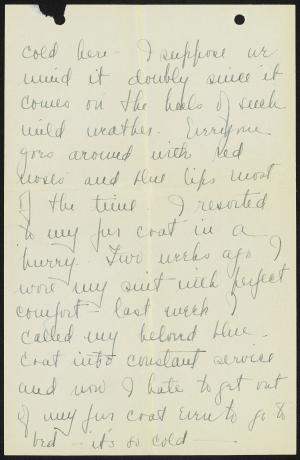 cold here - I suppose we
mind it doubly since it
comes on the heels of such
mild weather. Everyone
goes around with red
noses and blue lips most
of the time I resorted
to my fur coat in a
hurry. Two weeks ago I
wore my suit with perfect
comfort - last week I
called my beloved blue
coat into constant service
and now I hate to get out
of my fur coat even to go to
bed - it's so cold -